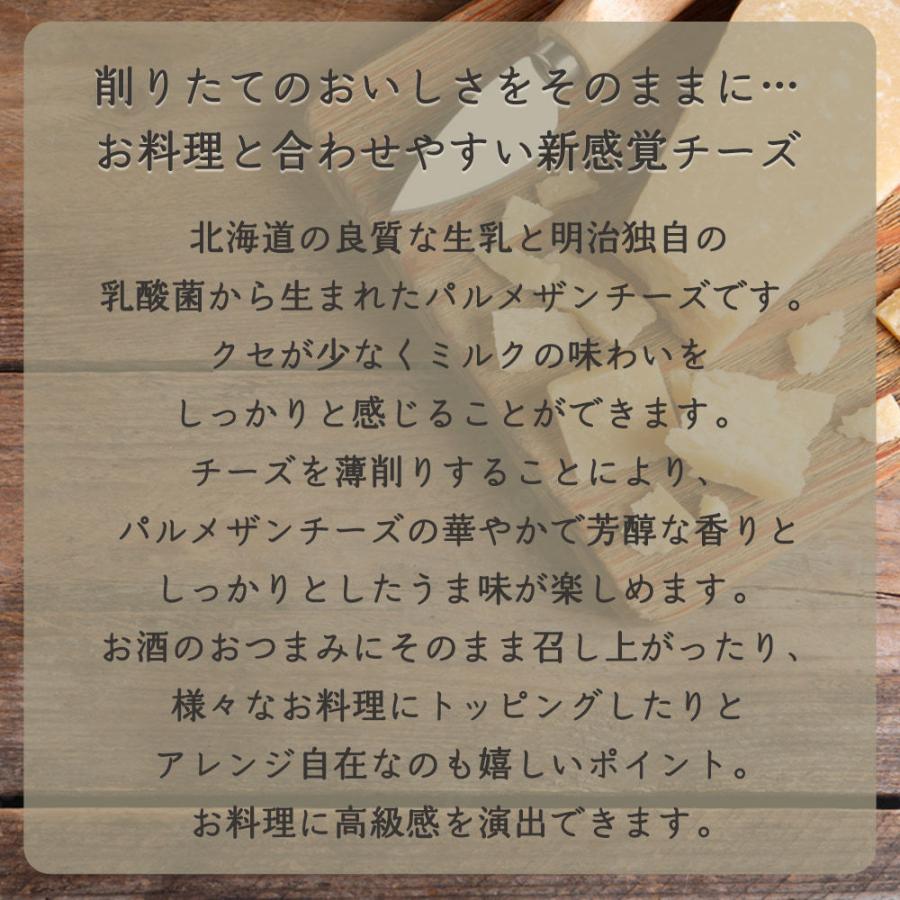 削りたてのおいしさをそのままに…
お料理と合わせやすい新感覚チーズ
北海道の良質な生乳と明治独自の
乳酸菌から生まれたパルメザンチーズです。
クセが少なくミルクの味わいを
しっかりと感じることができます。
チーズを薄削りすることにより、
パルメザンチーズの華やかで芳醇な香りと
しっかりとしたうま味が楽しめます。
お酒のおつまみにそのまま召し上がったり、
様々なお料理にトッピングしたりと
アレンジ自在なのも嬉しいポイント。
お料理に高級感を演出できます。